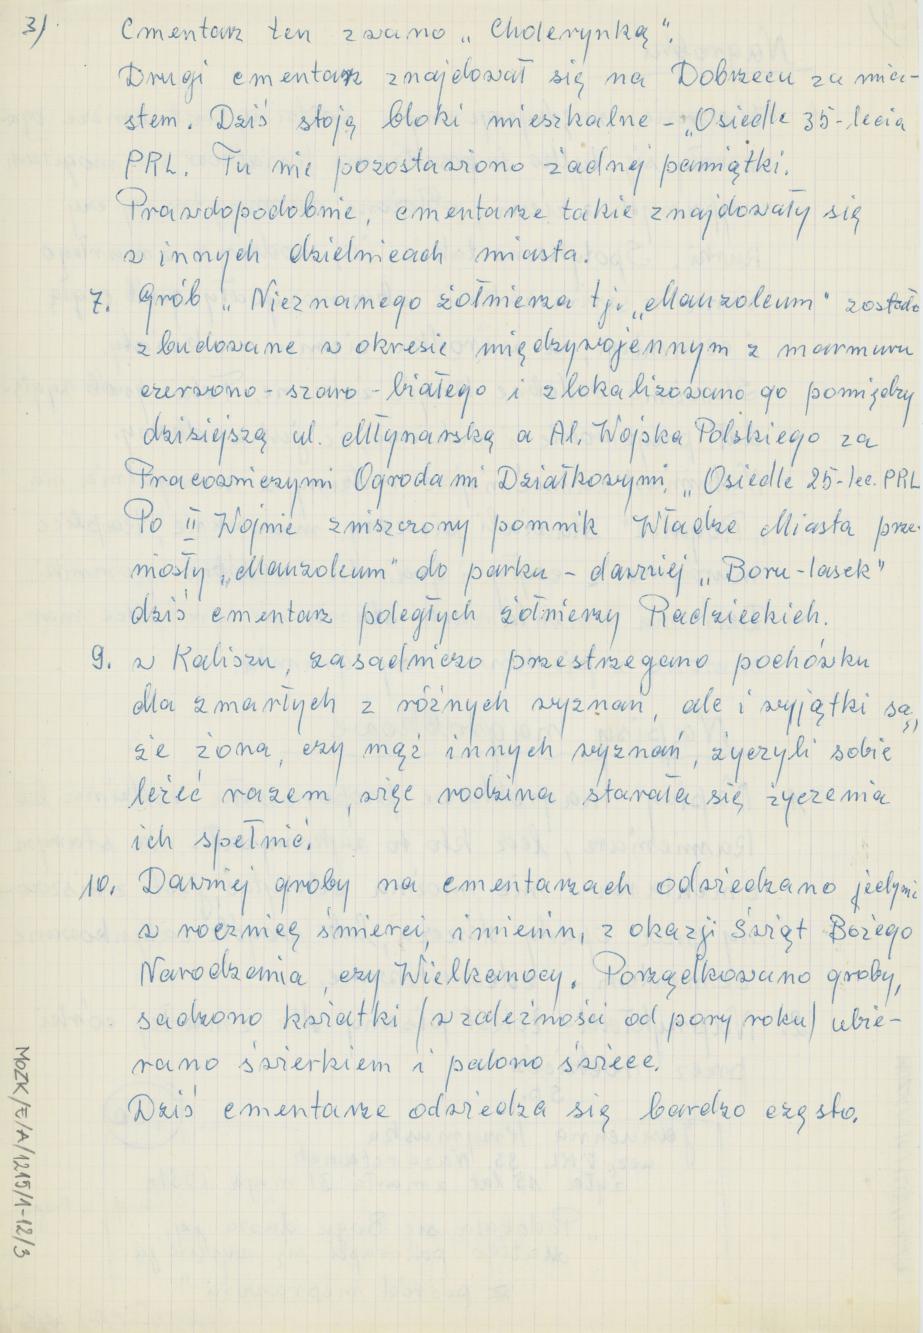 3)
Cmentarz ten zwano „Cholerynką".
Drugi cmentarz znajdował się na Dobrzecu za mia-
stem. Dziś stoją bloki mieszkalne - „Osiedle 35-lecia
PRL. Tu nie pozostawiono żadnej pamiątki.
Prawdopodobnie, cmentarze takie znajdowały się
w innych dzielnicach miasta.
7. Grób „Nieznanego żołnierza tj. „Mauzoleum" zostało
zbudowane w okresie międzywojennym z marmuru
czerwono-szaro-białego i zlokalizowano go pomiędzy
dzisiejszą ul. Młynarską a Al. Wojska Polskiego za
Pracowniczymi Ogrodami Działkowymi, „Osiedle 25-lec. PRL
Po II Wojnie zniszczony pomnik Władze Miasta prze-
niosły „Mauzoleum" do parku - dawniej „Boru-lasek"
dziś cmentarz poległych żołnierzy Radzieckich.
9. w Kaliszu, zasadniczo przestrzegano pochówku
dla zmarłych z różnych wyznań, ale i wyjątki są,
że żona, czy mąż innych wyznań, życzyli sobie
leżeć razem, więc rodzina starała się życzenia
ich spełnić.
10. Dawniej groby na cmentarzach odwiedzano jedynie
w rocznicę śmierci, imienin, z okazji Świąt Bożego
Narodzenia, czy Wielkanocy. Porządkowano groby,
sadzono kwiatki /w zależności od pory roku/ ubie-
rano świerkiem i palono świece.
Dziś cmentarze odwiedza się bardzo często.
MOZK/E/A/1215/1-12/3